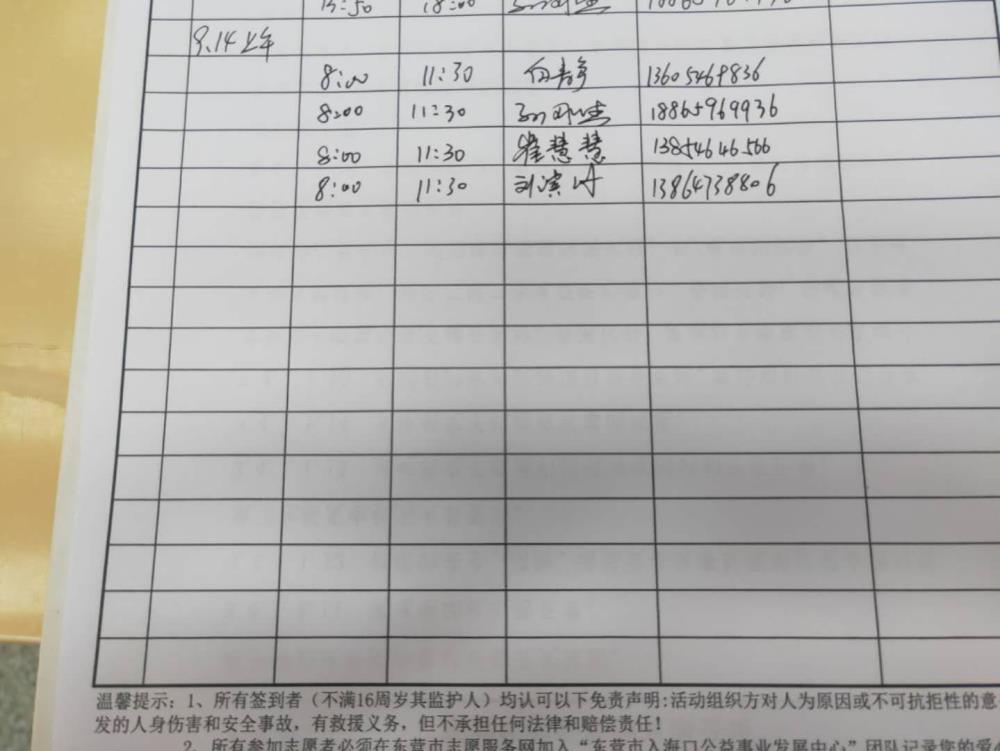 13:50 18:00
9.14上午
8:00 11:30 白静 13605469836
8:00 11:30 18865969936
8:00 11:30 崔慧慧 13854646566
8:00 11:30 刘滨 13864738806
温馨提示：1、所有签到者（不满16周岁其监护人）均认可以下免责声明：活动组织方对人为原因或不可抗拒性的意
发的人身伤害和安全事故，有救援义务，但不承担任何法律和赔偿责任！
2、所有参加志愿者必须在东营市志愿服务网加入“东营市入海口公益事业发展中心”团队记录您的受